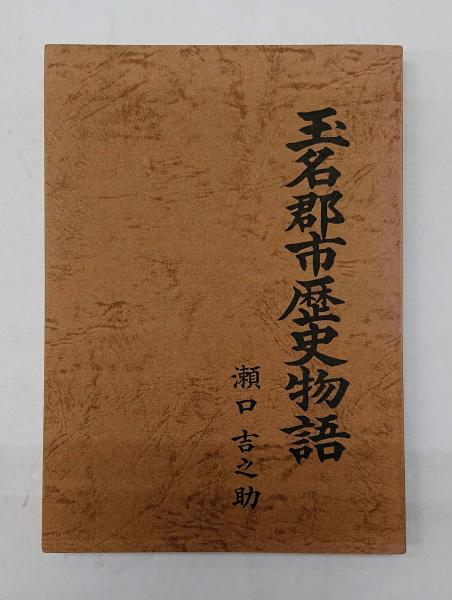 玉名郡市歴史物語
瀬口吉之助